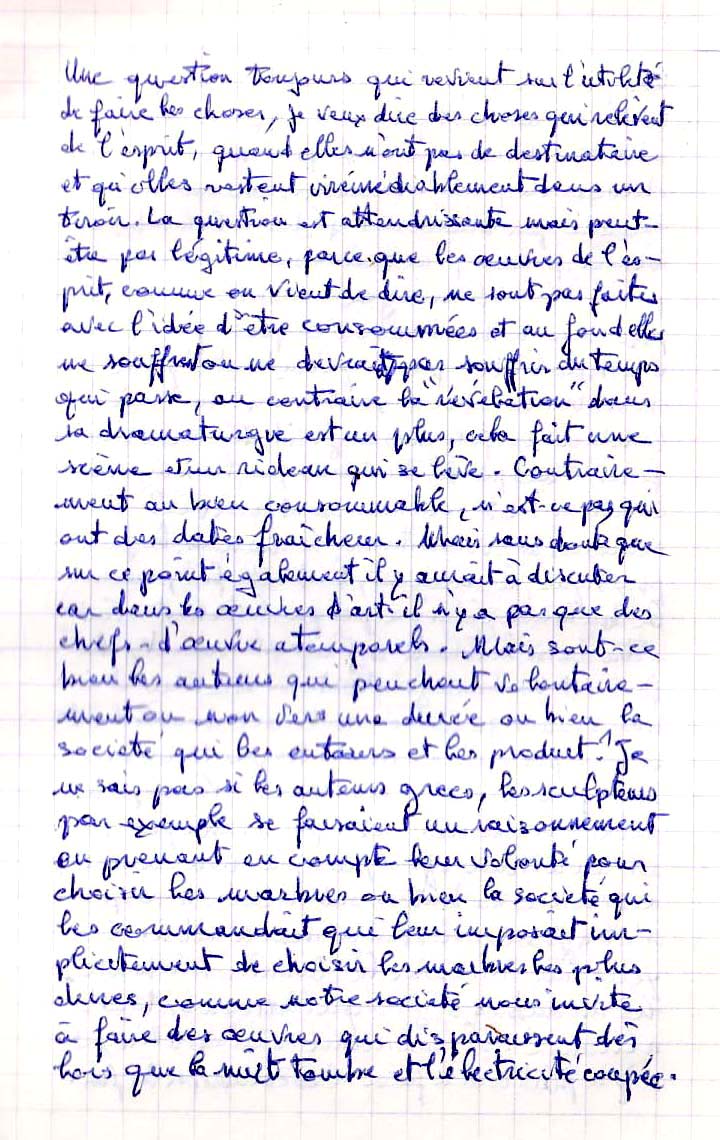 Une question toujours qui revient sur l'utilité
de faire les choses, je veux dire des choses qui relèvent
de l'esprit, quand elles n'ont pas de destinataire
et qu'elles restent irrémédiablement dans un
tiroir. La question est attendrissante mais peut-
être pas légitime, parce que les œuvres de l'es-
prit, comme on vient de dire, ne sont pas faites
avec l'idée d'être consommées et au fond elles
ne souffrent ou ne devraient pas souffrir du temps
qui passe, au contraire la "révélation" dans
sa dramaturgie est un plus, cela fait une
scène et un rideau qui se lève. Contraire-
ment au bien consommable, n'est-ce pas qui
ont des dates fraîcheur. Mais sans doute que
sur ce point également il y aurait à discuter
car dans les œuvres d'art il n'y a pas que des
chefs-d'œuvre atemporels. Mais sont-ce
bien les auteurs qui penchent volontaire-
ment ou non vers une durée ou bien la
société qui les entoure et les produit? Je
ne sais pas si les auteurs grecs, les sculpteurs
par exemple se faisaient un raisonnement
en prenant en compte leur volonté pour
choisir les marbres ou bien la société qui
les commandait qui leur imposait im-
plicitement de choisir les marbres les plus
dures, comme notre société nous invite
à faire des œuvres qui disparaissent dès
lors que la nuit tombe et l'électricité coupée.